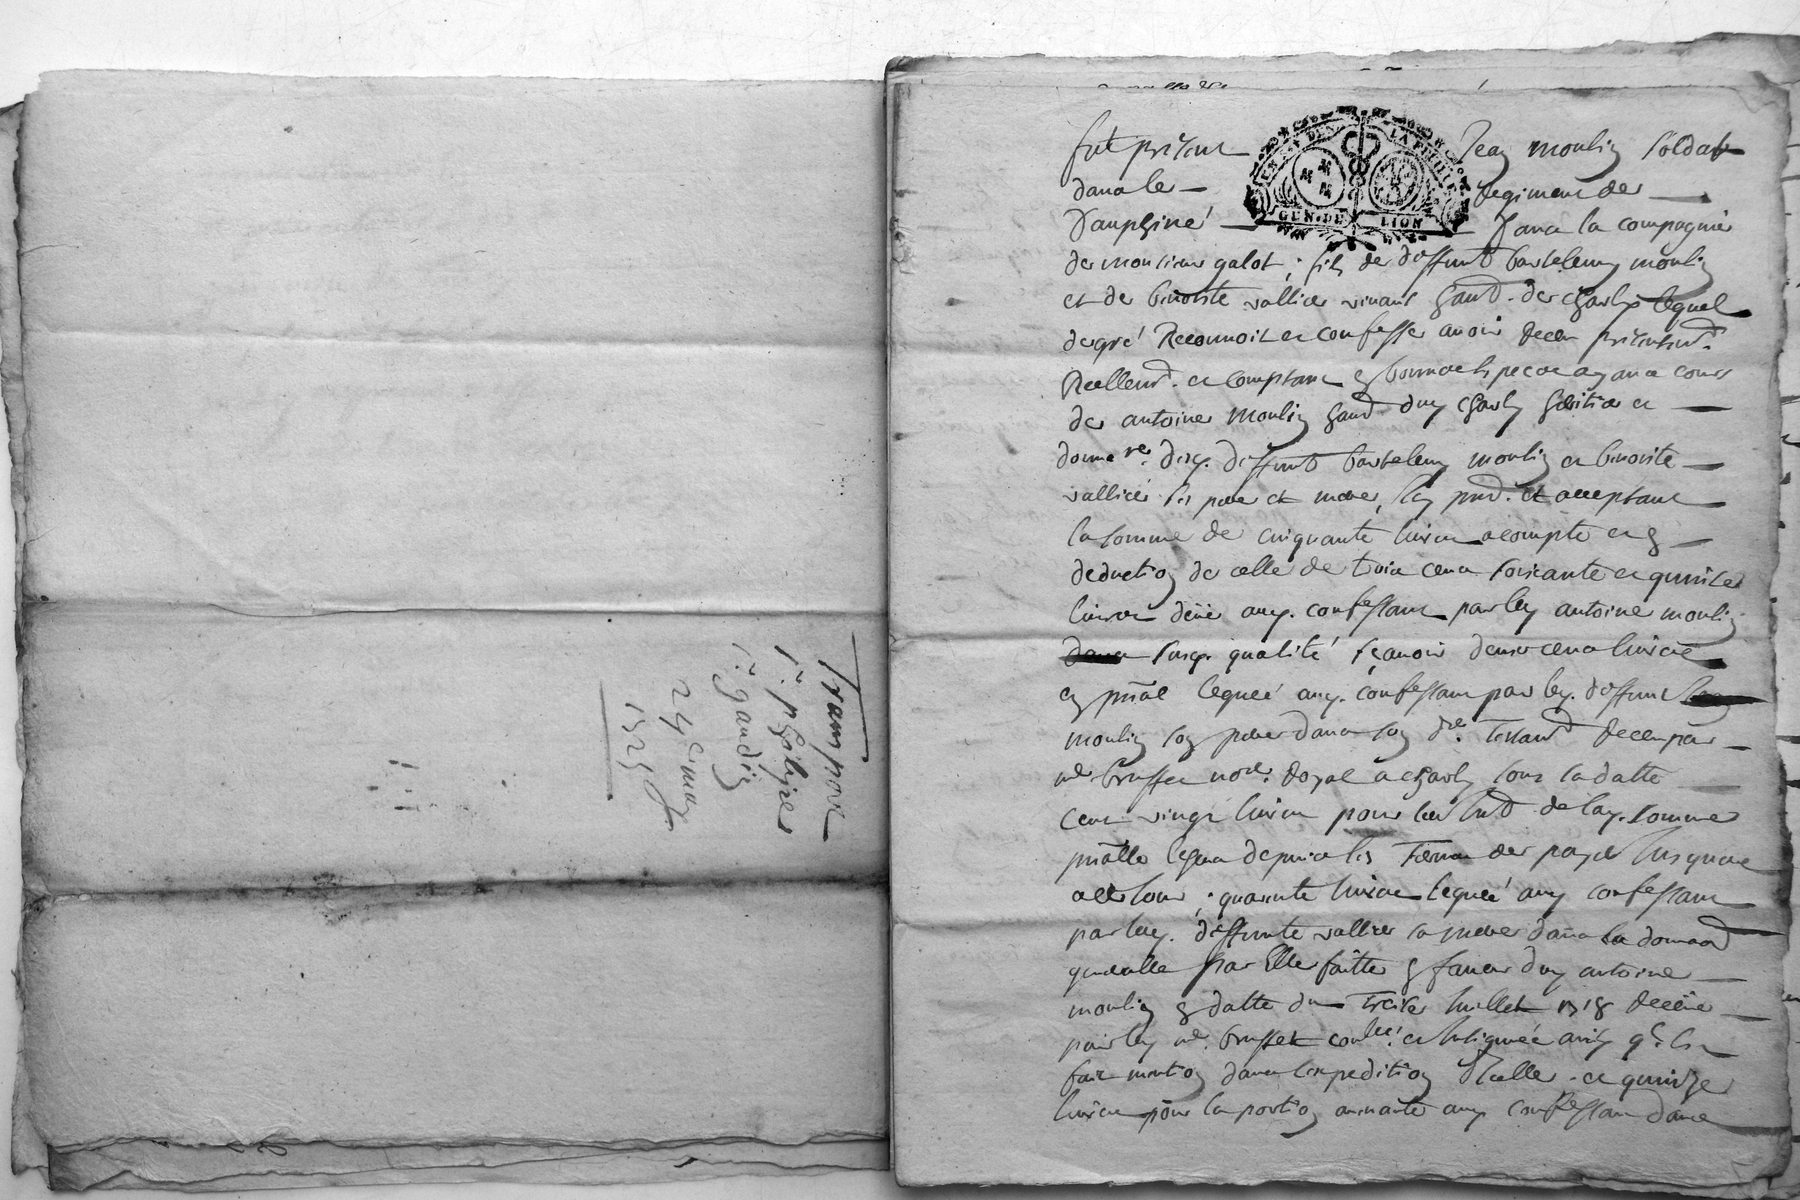 Transport
pr philipe
pr gaudin
24e may
1525
fut présent Jean moulin soldat
dans le regiment de
Dauphiné dans la compagnie
de monsieur galot, fils de deffunt bartelemy moulin
et de benoiste vallier vivant hand. de charly lequel
de gré Reconnoit et confesse avoir receu présentemd.
Reellemd. et comptant en bonnes espèces ayant cours
de antoine moulin hand. duy charly héritier et
donnere. desy. deffunt bartelemy moulin et benoiste
vallier ses père et mère, luy pnd. et acceptant
la somme de cinquante livres acompte et en
deduction de celle de trois cens soixante et quinze
livres deüe auy. confessant par ley antoine moulin
susy. qualité sçavoir deux cens livres
en pñal legueé auy. confessant par ley. deffunt
moulin son père dans son dre. Testamd. receu par
me. brusset nore. Royal a charly sous sa datte
cent vingt livres pour les intd. de lay. somme
pñalle legué depuis les Termes de payer jusques
a ce jour, quarente livres leguée auy confessant
par lay. deffunte vallier sa mère dans la donaon
generalle par Elle faitte en faveur duy antoine
moulin en datte du Treize Juillet 1718 receüe
par ley me. brusset conllé. et insignuée ainsy qr. s'en
fait mention dans l'expedition d'Icelle. et quinze
livres pour la portion auy confessant dans
GEN. DE LION